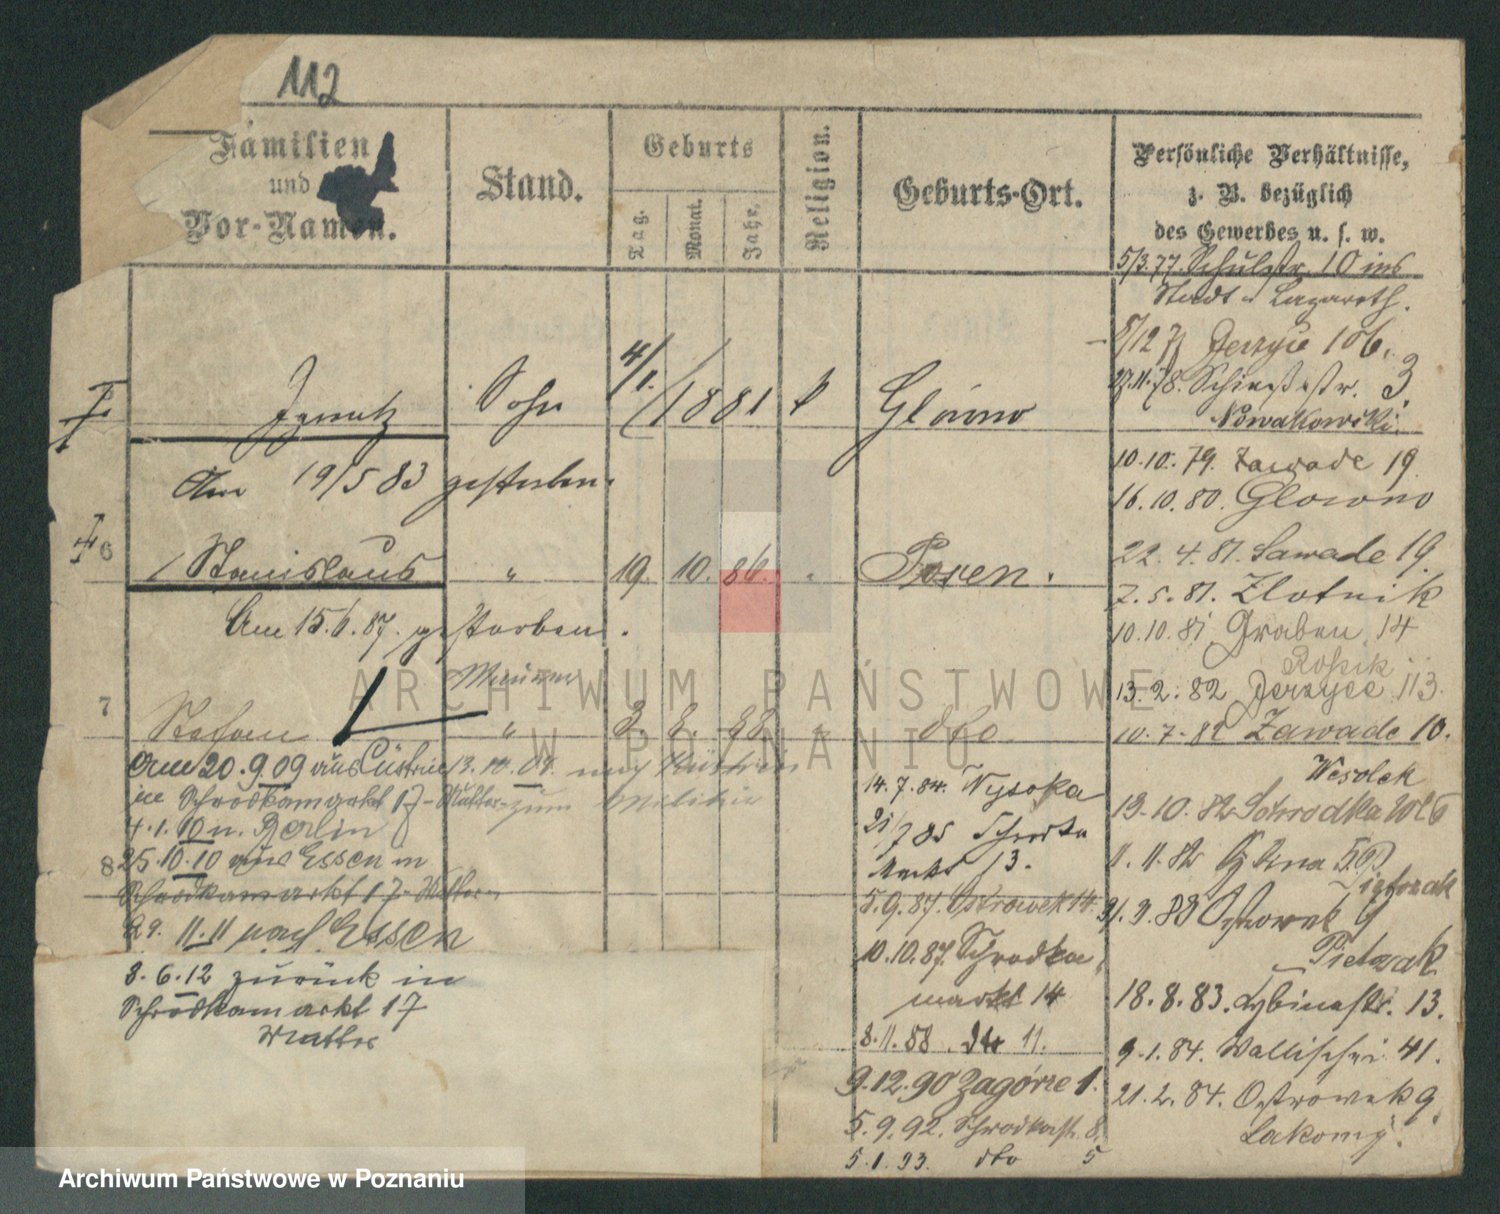 112
Familien
und
Vor-Namen.
Stand.
Geburts
Tag.
Monat.
Jahr.
Religion.
Geburts-Ort.
Persönliche Verhältnisse,
z. B. bezüglich
des Gewerbes u. s. w.
5/3.77. Schulstr. 10 ins
Stadt Lazareth.
Jerzyce 106.
3.
Nowakowski.
10.10.79. Zawade 19
16.10.80. Glowno
22.4.81. Sawade 19.
7.5.81. Zlotnik
10.10.81 Graben 14
13.2.82 Jerzyce 113.
10.7.82 Zawade 10.
Wesolek
13.10.82 Schrodka
11.11.82
Pietrzak
Ostrowek 9
Pietrzak
18.8.83. Cybinastr. 13.
9.1.84. Wallischei 41.
21.2.84. Ostrowek 9.
Lakomy.
Ignatz Sohn 4/1. 1881 k Glówno
Am 19/5 83 gestorben.
6 Stanislaus " 19. 10. 86. " Posen.
Am 15.6.87. gestorben.
7 Stefan " 8. 88 " dto
Am 20.9.09 aus Cüstrin
in Schrodkamarkt 17 - Mutter
4.1.10 n. Berlin
13.10.08. nach Küstrin
zum Militär
8
25.10.10 aus Essen in
Schrodkamarkt 17 - Mutter
29.11.11 nach Essen
8.6.12 zurück in
Schrodkamarkt 17
Mutter
14.7.84. Wysoka
Schrodka
Markt 13.
5.9.87. Ostrowek 14.
10.10.87. Schrodka
markt 14
8.11.88. dto 11.
9.12.90 Zagórze 1.
5.9.92. Schrodkastr. 8.
5.1.93. dto 5
ARCHIWUM PAŃSTWOWE
W POZNANIU
Archiwum Państwowe w Poznaniu